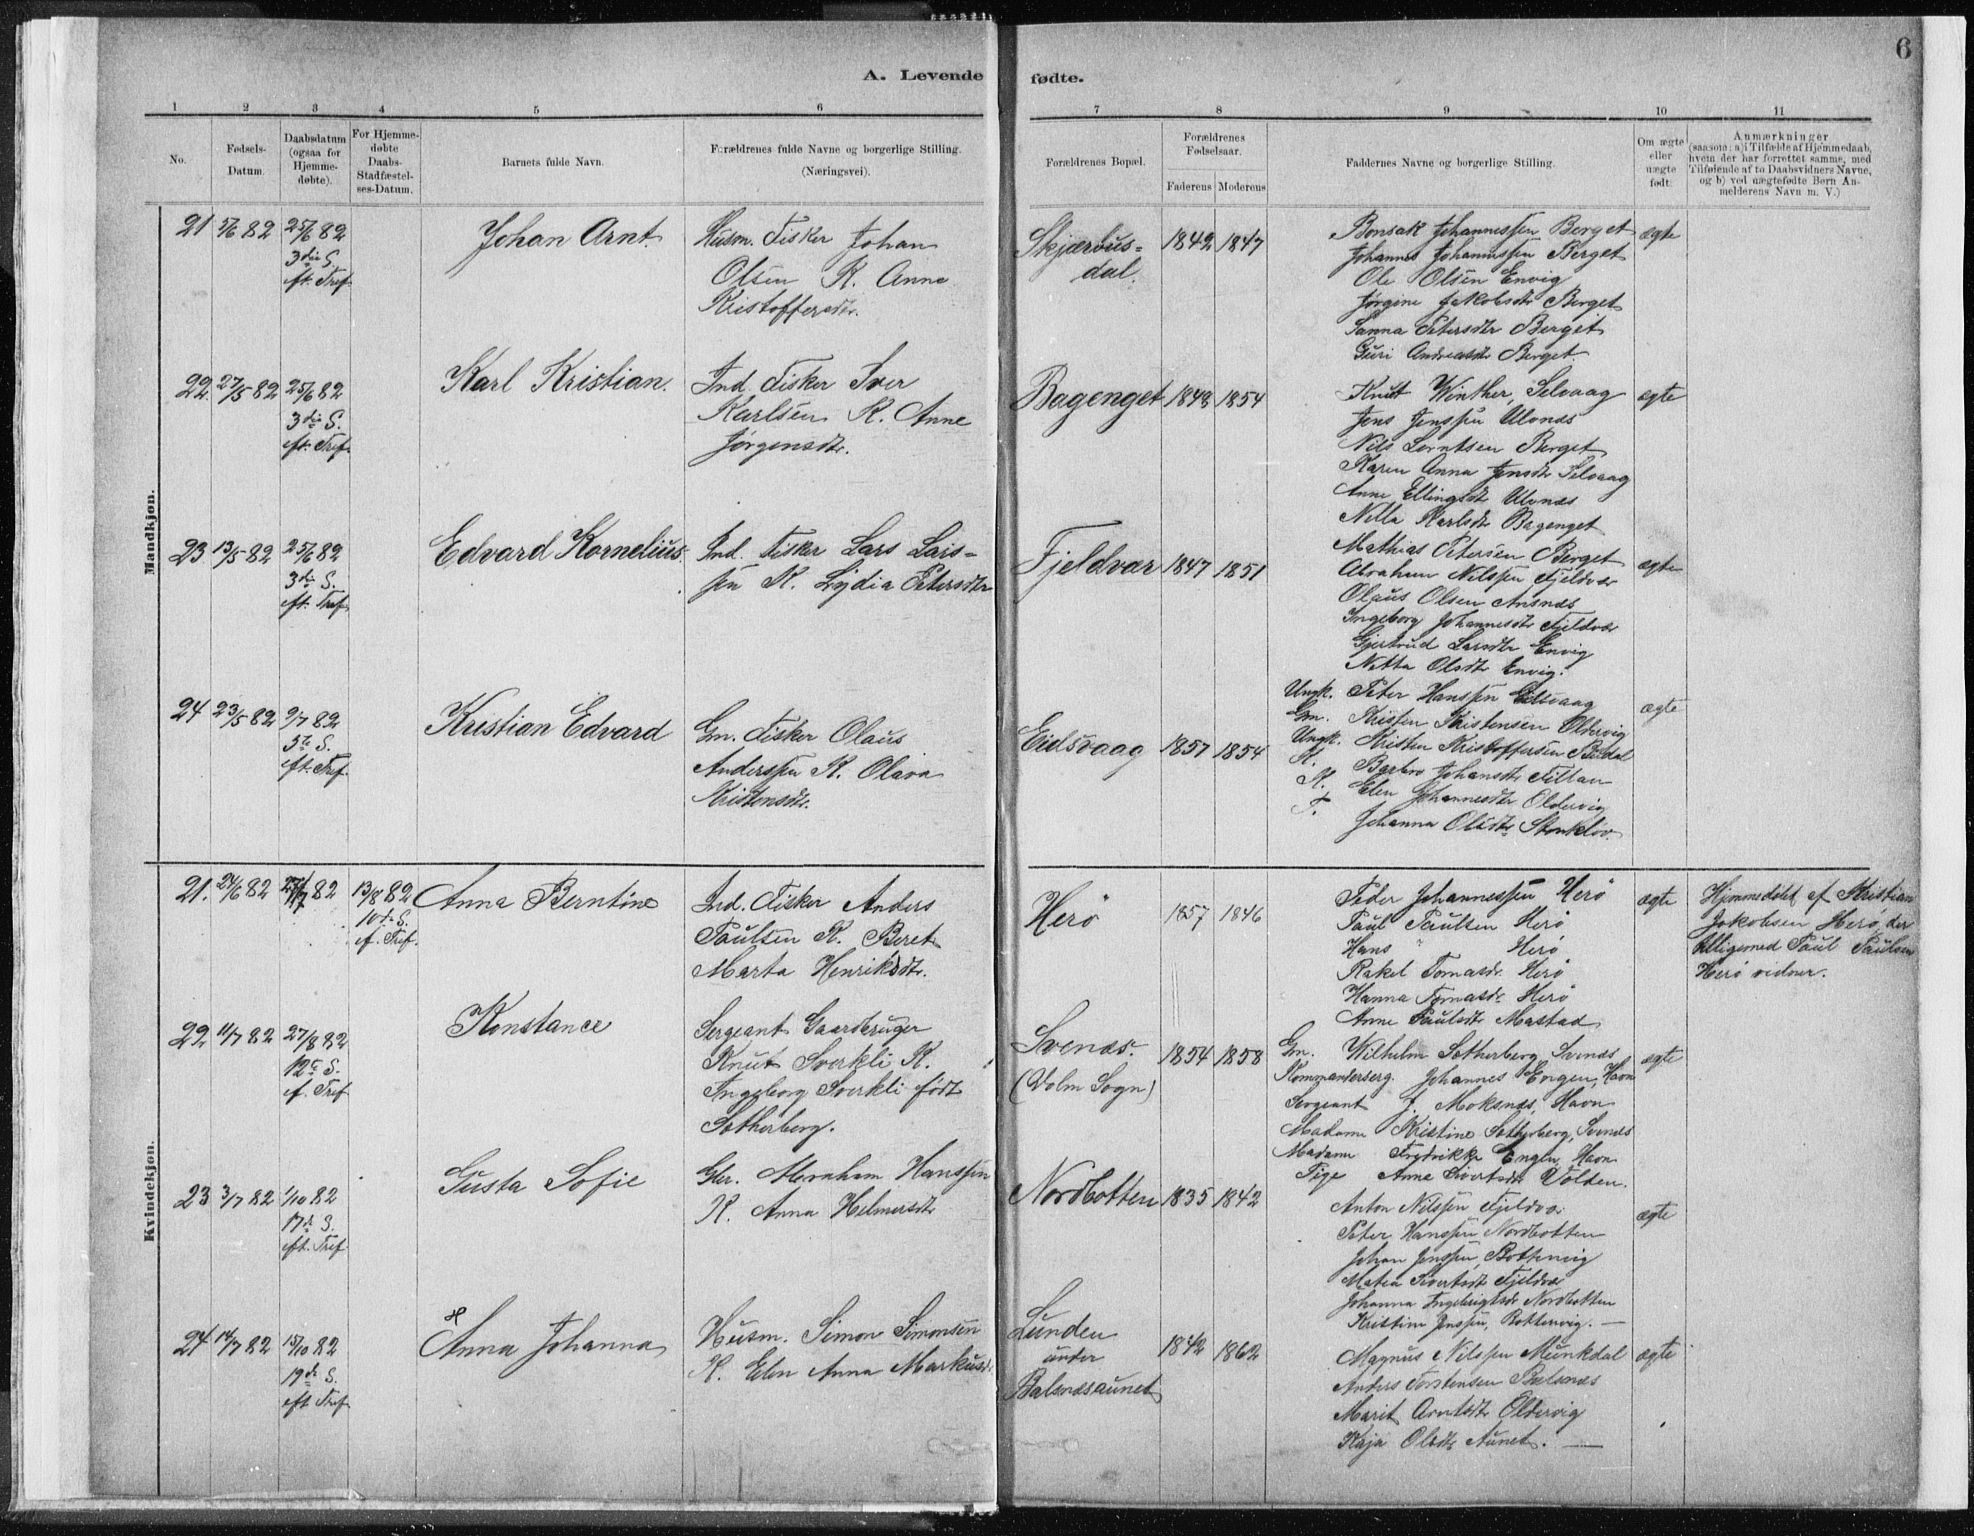 6
A. Levende fødte.
1 2 3 4 5 6 7 8 9 10 11
No.
Fødsels-
Datum.
Daabsdatum
(ogsaa for
Hjemme-
døbte).
For Hjemme-
døbte
Daabs-
Stadfæstel-
ses-Datum.
Barnets fulde Navn.
Forældrenes fulde Navne og borgerlige Stilling.
(Næringsvei).
Forældrenes Bopæl.
Forældrenes
Fødselsaar.
Faderens Moderens
Faddernes Navne og borgerlige Stilling.
Om ægte
eller
uægte
født.
Anmærkninger
(saasom: a) i Tilfælde af Hjemmedaab,
hvem der har forrettet samme, med
Tilføiende af to Daabsvidners Navne,
og b) ved uægtefødte Børn An-
melderens Navn m. V.)
Mandkjøn.
21 5/6 82 25/6 82
3die S.
eft. Tref.
Johan Arnt.
Husm. Fisker Johan
Olsen K. Anne
Kristoffersdtr.
Skjærvus-
dal.
1842 1847
Bonsak Johannessen Berget
Johannes Johannessen Berget
Ole Olsen Envig
Jørgine Jakobsdtr Berget
Sanna Petersdtr Berget
Guri Andreasdtr Berget.
ægte
22. 27/5 82 25/6 82
3die S.
eft. Tref.
Karl Kristian.
Ind. Fisker Iver
Karlsen K. Anne
Jørgensdtr.
Bagenget 1843 1854
Knut Winther, Selvaag
Jens Jenssen Ulvnæs
Nils Lorntsen Berget
Karen Anna Jensdtr Selvaag
Anne Ellingsdtr Ulvnæs
Nilla Karlsdtr Bagenget
ægte
23 13/5 82 25/6 82
3die S.
eft. Tref.
Edvard Kornelius.
Ind. Fisker Lars Lars-
sen K. Lydia Petersdtr
Fjeldvær 1847 1851
Mathias Petersen Berget
Abraham Nilssen Fjeldvær
Olaus Olsen Ansnæs
Ingeborg Johannesdtr Fjeldvær
Gjertrud Larsdtr Envig
Netta Olsdtr Envig.
ægte
24 23/5 82 9/7 82
5te S.
eft. Tref.
Kristian Edvard
Gm. Fisker Olaus
Anderssen K. Olava
Kristensdtr.
Eidsvaag 1857 1854
Ungk. Peter Hanssen Eidsvaag
Gm. Kristen Kristensen Oldervig
Ungk. Kristen Kristoffersen Bildal
K. Barbro Johansdtr Fillan
K. Elen Johannesdtr Oldervig
T. Johanna Olsdtr Stenkløv.
ægte
Kvindekjøn.
21. 24/6 82 82 13/8 82
10de S.
ef. Tref.
Anna Berntine
Ind. Fisker Anders
Paulsen K. Beret
Marta Henriksdtr.
Herø 1857 1846
Peder Johannessen Herø
Paul Paulsen Herø
Hans " Herø
Rakel Tomasdr. Herø
Hanna Tomasdr Herø
Anne Paulsdtr Mastad
ægte
Hjemmedøbt af Kristian
Jakobsen Herø, der
tilligemed Paul Paulsen
Herø vidner.
22. 11/7 82 27/8 82
12te S.
ef. Tref
Konstance
Sergeant Gaardbruger
Knut Sverkli K.
Ingeborg Sverkli født
Sotherberg.
Svenæs.
(Dolm Sogn)
1854 1858
Gm. Wilhelm Sotherberg, Svenæs
Kommanderserg. Johannes Engen, Havn
Sergeant J. Moksnæs, Havn
Madame Kristine Sotherberg, Svenæs
Madame Fredrikke Engen, Havn
Pige Anne Sivertsdtr Volden.
ægte
23 3/7 82 1/10 82
17de S.
eft. Tref.
Gusta Sofie
Gbr. Abraham Hanssen
K. Anna Helmersdtr
Nordbotten 1835 1842
Anton Nilssen Fjeldvæ.
Peter Hanssen Nordbotten
Johan Jenssen, Bottenvig
Matea Sivertsdtr Fjeldvær
Johanna Ingebrigtsdr Nordbotten
Kristine Jenssen, Bottenvig. —
ægte
24 14/7 82 15/10 82
19de S.
eft Tref.
Anna Johanna
Husm. Simon Simonsen
K. Elen Anna Markusd.
Lunden
under
Balsnæsaunet
1842 1862
Magnus Nilssen Munkdal
Anders Torstensen Balsnæs
Marit Arntsdtr Oldervig
Kaja Olsdtr Aunet. —
ægte